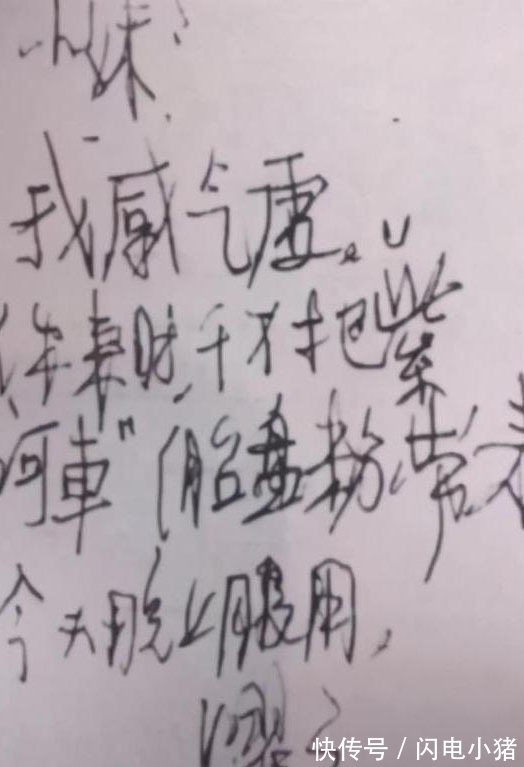 小妹:
我感气虚。
你来时,千万把"紫
河車"(胎盘粉)带来
今天晚上服用,
快传号/闪电小猪